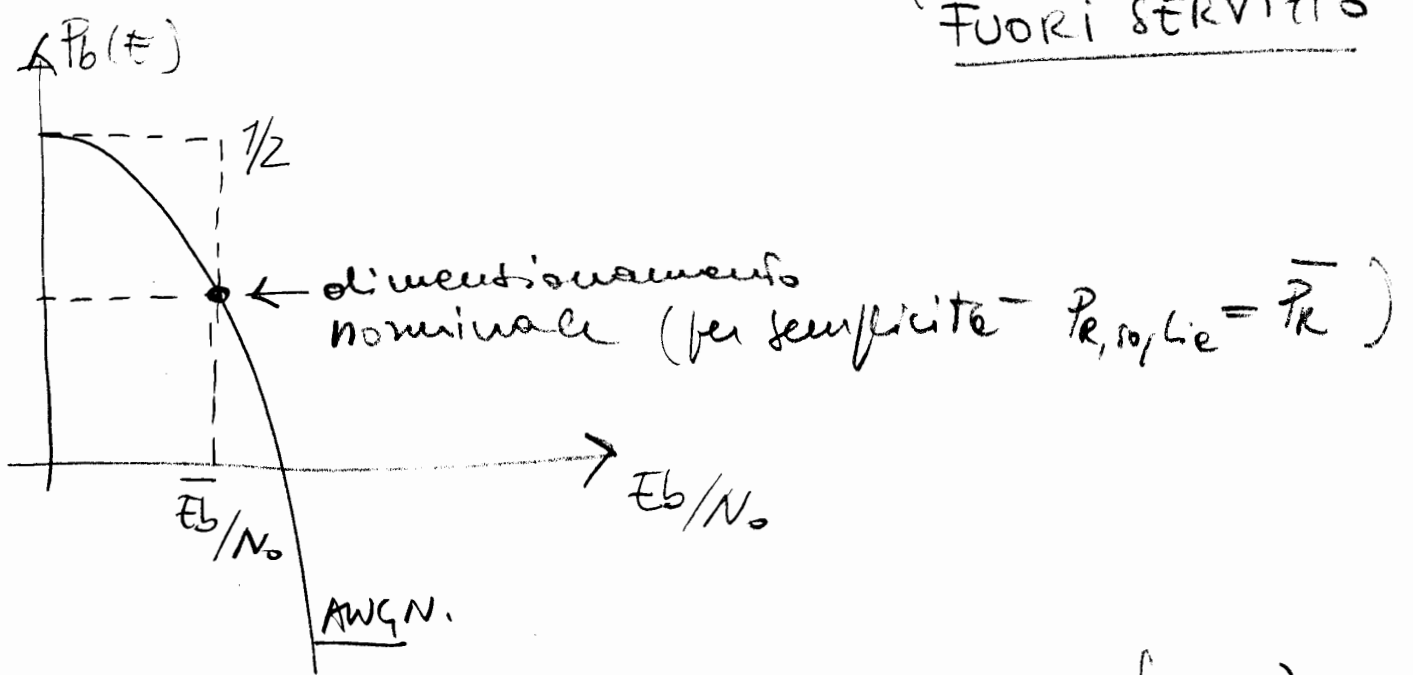 FUORI SERVIZIO
Pb(E)
1/2
← dimensionamento
nominale (per semplicità P_R,soglia = \overline{P_R})
\overline{Eb}/N₀
Eb/N₀
AWGN.